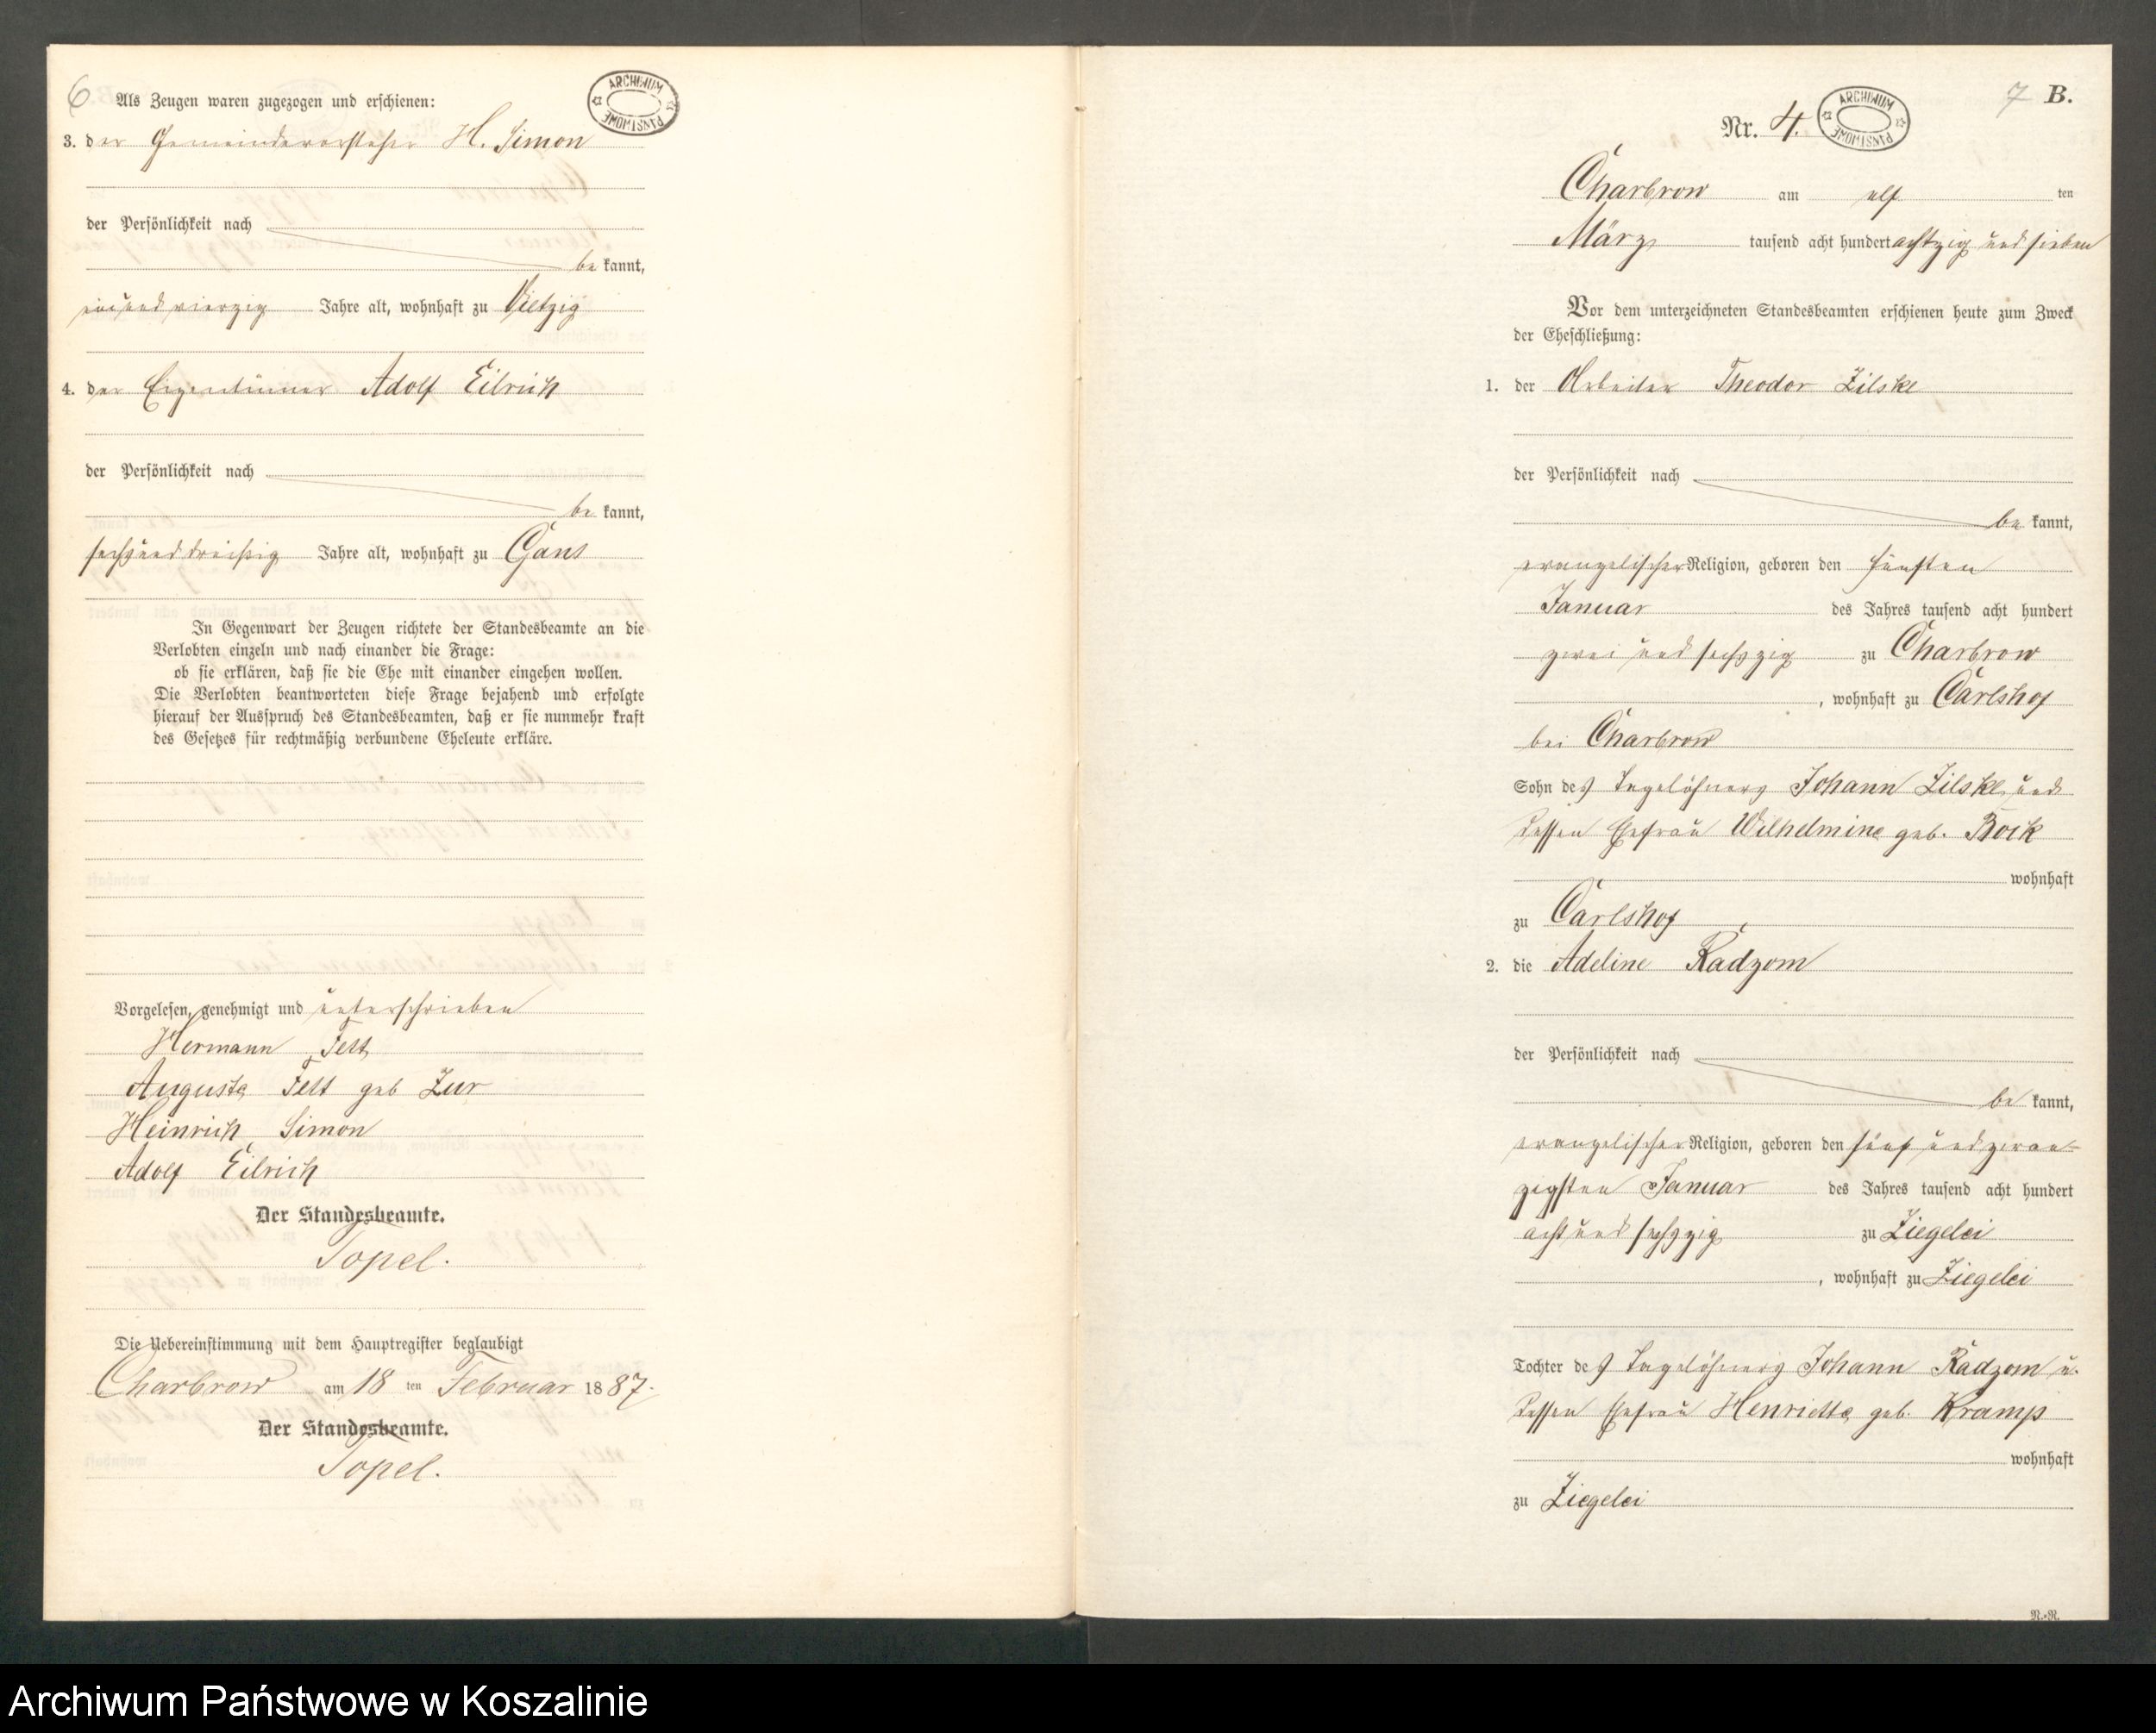 6
Als Zeugen waren zugezogen und erschienen:
ARCHIWUM PAŃSTWOWE
3. der Gemeindevorsteher H. Simon
der Persönlichkeit nach
be kannt,
ein und vierzig Jahre alt, wohnhaft zu Vietzig
4. der Eigentümer Adolf Eilrich
der Persönlichkeit nach
be kannt,
sechs und dreißig Jahre alt, wohnhaft zu Gans
In Gegenwart der Zeugen richtete der Standesbeamte an die
Verlobten einzeln und nach einander die Frage:
ob sie erklären, daß sie die Ehe mit einander eingehen wollen.
Die Verlobten beantworteten diese Frage bejahend und erfolgte
hierauf der Ausspruch des Standesbeamten, daß er sie nunmehr kraft
des Gesetzes für rechtmäßig verbundene Eheleute erkläre.
Vorgelesen, genehmigt und unterschrieben
Hermann Fett
Auguste Fett geb Zur
Heinrich Simon
Adolf Eilrich
Der Standesbeamte.
Topel.
Die Uebereinstimmung mit dem Hauptregister beglaubigt
Charbrow am 18 ten Februar 1887.
Der Standesbeamte.
Topel.
7 B.
Nr. 4.
ARCHIWUM PAŃSTWOWE
Charbrow am elf ten
März tausend acht hundert achtzig und sieben
Vor dem unterzeichneten Standesbeamten erschienen heute zum Zweck
der Eheschließung:
1. der Arbeiter Theodor Zilske
der Persönlichkeit nach
be kannt,
evangelischer Religion, geboren den fünften
Januar des Jahres tausend acht hundert
zwei und sechszig zu Charbrow
, wohnhaft zu Carlshof
bei Charbrow
Sohn des Tagelöhners Johann Zilske und
dessen Ehefrau Wilhelmine geb. Bock
wohnhaft
zu Carlshof
2. die Adeline Radzom
der Persönlichkeit nach
be kannt,
evangelischer Religion, geboren den fünf und zwan-
zigsten Januar des Jahres tausend acht hundert
acht und sechszig zu Ziegelei
, wohnhaft zu Ziegelei
Tochter des Tagelöhners Johann Radzom u.
dessen Ehefrau Henriette geb. Kramp
wohnhaft
zu Ziegelei
N.-N.
Archiwum Państwowe w Koszalinie